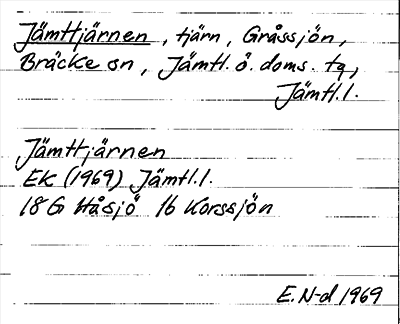 Jämttjärnen, tjärn, Gråssjön,
Bräcke sn, Jämtl. ö. doms. tg,
Jämtl.l.
Jämttjärnen
EK (1969) Jämtl.l.
18G Håsjö 1b Korssjön
E.N-d 1969